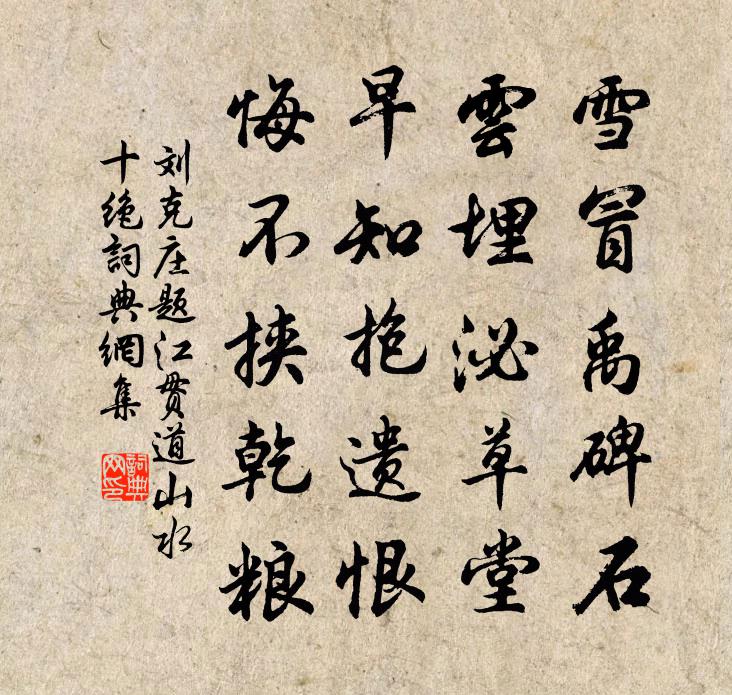 雪冒禹碑石
雲埋泌草堂
早知抱遗恨
悔不挟乾粮
刘克庄题江贯道山水
十绝詞典網集
詞典网印